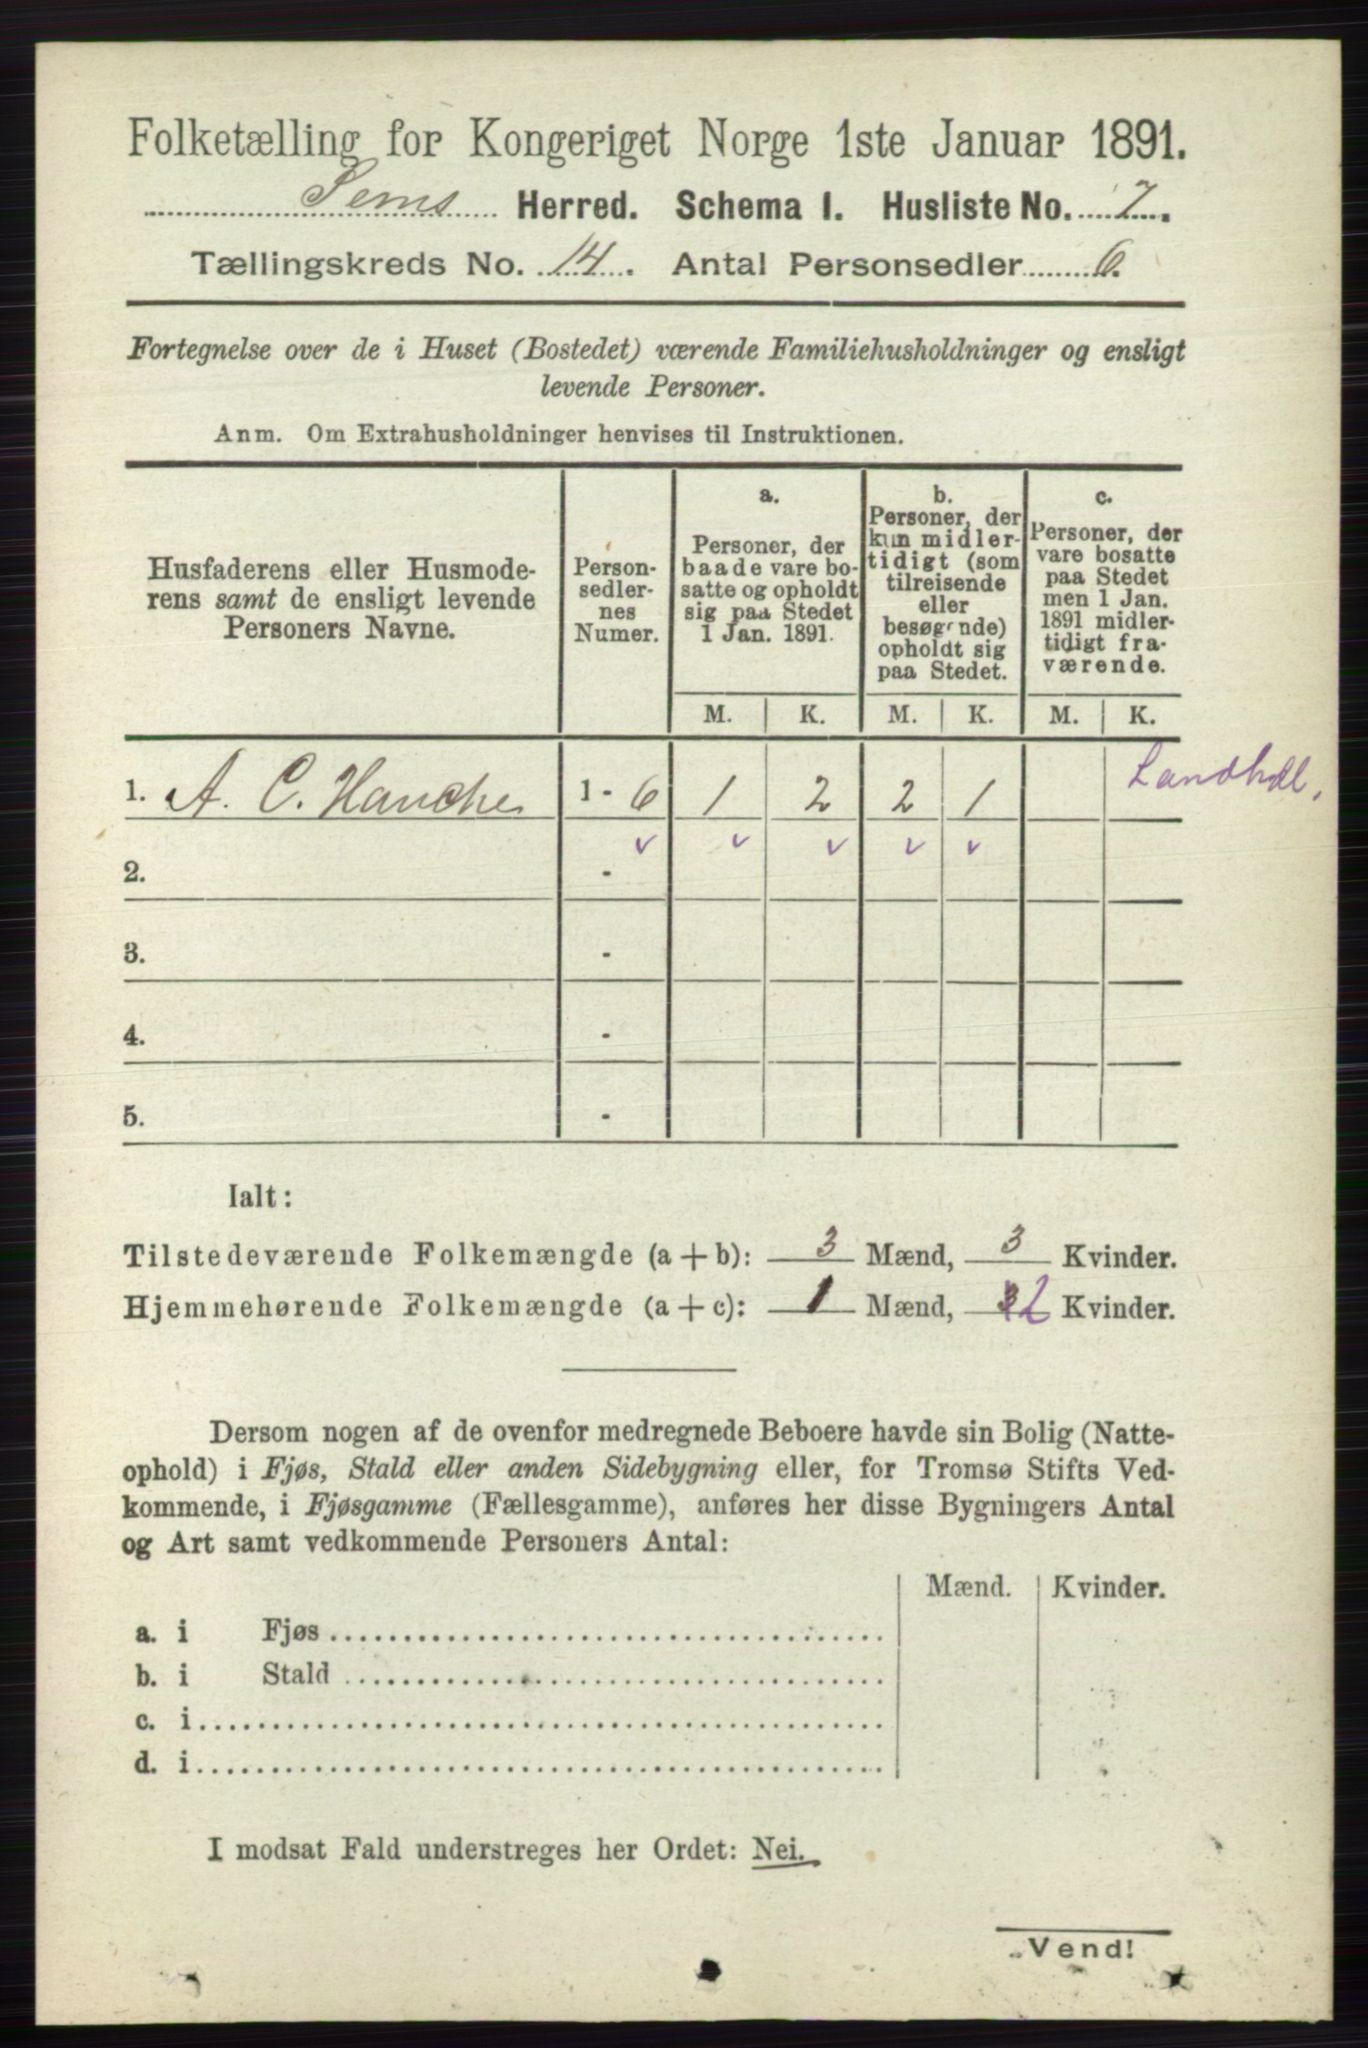 Folketælling for Kongeriget Norge 1ste Januar 1891.
Sems Herred. Schema I. Husliste No. 7.
Tællingskreds No. 14. Antal Personsedler 6.
Fortegnelse over de i Huset (Bostedet) værende Familiehusholdninger og ensligt
levende Personer.
Anm. Om Extrahusholdninger henvises til Instruktionen.
Husfaderens eller Husmode-
rens samt de ensligt levende
Personers Navne.
Person-
sedler-
nes
Numer.
a.
Personer, der
baade vare bo-
satte og opholdt
sig paa Stedet
1 Jan. 1891.
b.
Personer, der
kun midler-
tidigt (som
tilreisende
eller
besøgende)
opholdt sig
paa Stedet.
c.
Personer, der
vare bosatte
paa Stedet
men 1 Jan.
1891 midler-
tidigt fra-
værende.
M. K. M. K. M. K.
1. A. C. Hauche 1 - 6 1 2 2 1 Landhdl.
v v v v v
2. -
3. -
4. -
5. -
Ialt:
Tilstedeværende Folkemængde (a + b): 3 Mænd, 3 Kvinder.
Hjemmehørende Folkemængde (a + c): 1 Mænd, 2 Kvinder.
Dersom nogen af de ovenfor medregnede Beboere havde sin Bolig (Natte-
ophold) i Fjøs, Stald eller anden Sidebygning eller, for Tromsø Stifts Ved-
kommende, i Fjøsgamme (Fællesgamme), anføres her disse Bygningers Antal
og Art samt vedkommende Personers Antal:
Mænd. Kvinder.
a. i Fjøs
b. i Stald
c. i
d. i
I modsat Fald understreges her Ordet: Nei.
Vend!